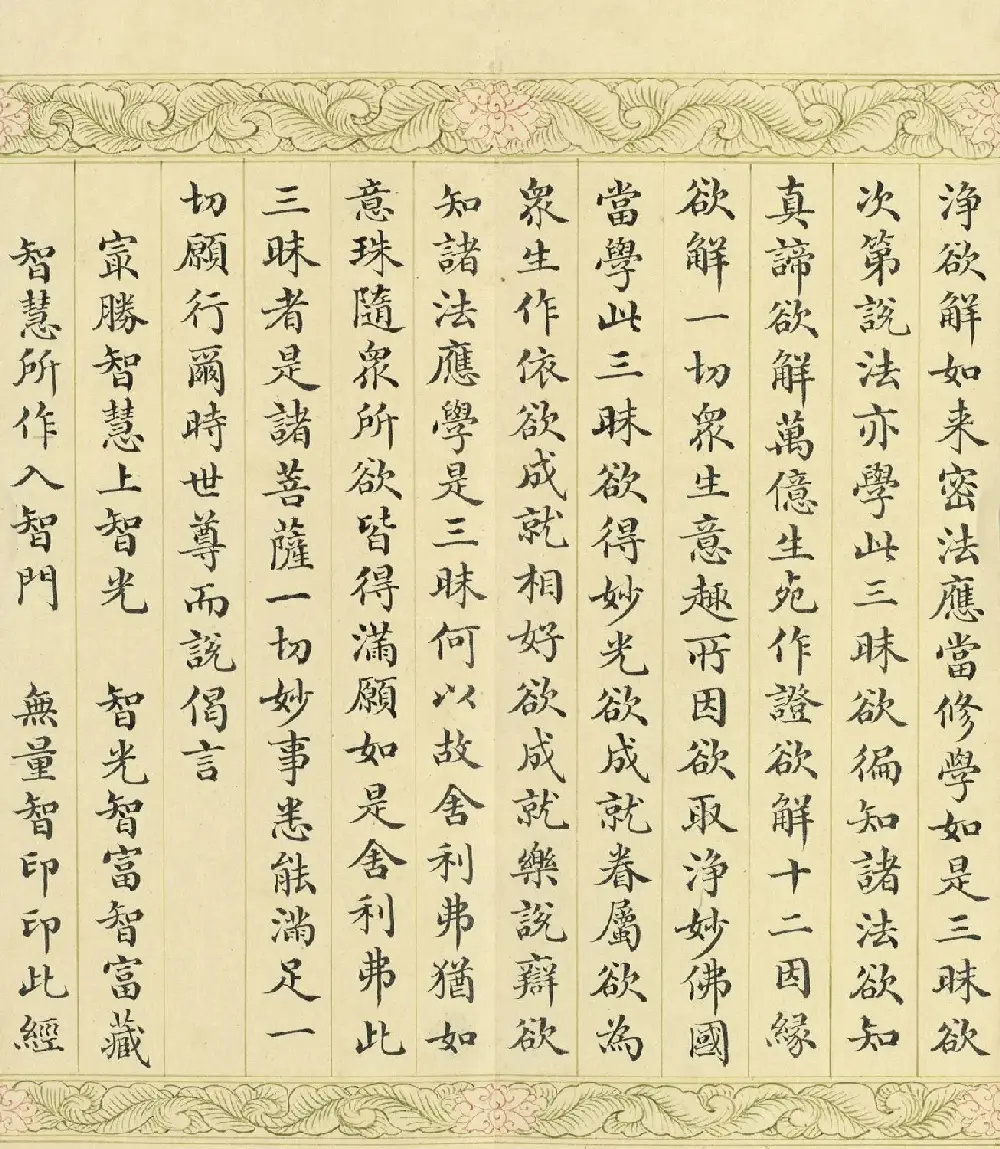 浄欲解如来密法應當修學如是三昧欲
次第說法亦學此三昧欲徧知諸法欲知
真諦欲解萬億生死作證欲解十二因緣
欲解一切衆生意趣所因欲取浄妙佛國
當學此三昧欲得妙光欲成就眷屬欲為
衆生作依欲成就相好欲成就樂說辯欲
知諸法應學是三昧何以故舍利弗猶如
意珠隨衆所欲皆得滿願如是舍利弗此
三昧者是諸菩薩一切妙事悉能滿足一
切願行爾時世尊而說偈言
冣勝智慧上智光 智光智富智富藏
智慧所作入智門 無量智印印此經